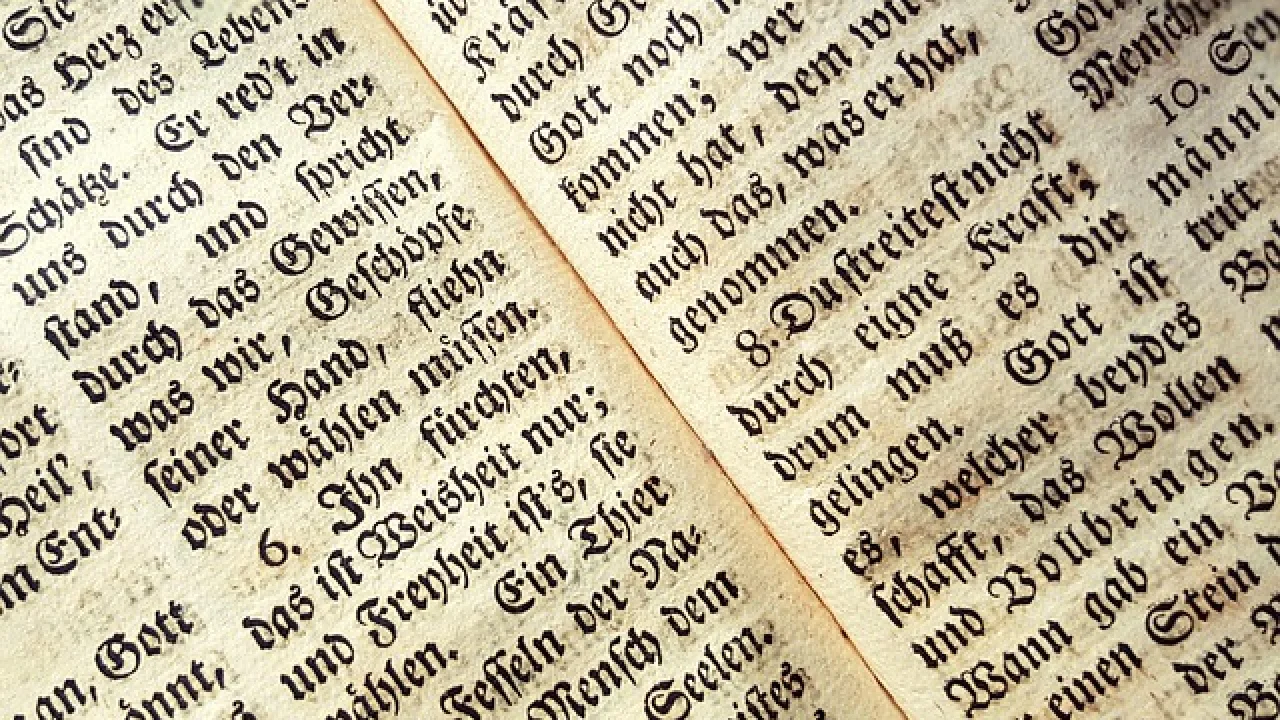 Heil',
Ent⸗
an, Gott
Sie
das Herz
ſind des Lebens
Schätze. Er red't in
uns durch den Ver⸗
ſtand, und ſpricht
durch das Gewiſſen,
was wir, Geſchöpfe
ſeiner Hand, fliehn
oder wählen müſſen.
6. Ihn fürchten,
das iſt Weisheit nur;
und Freyheit iſt's, ſie
wählen. Ein Thier
Feſſeln der Na⸗
Menſch dem
Seelen.
durch
Gott noch
kommen; wer
nicht hat, dem
auch das, was er hat,
genommen.
8. Du ſtreiteſt nicht
durch eigne Kraft;
drum muß es dir
gelingen. Gott iſt
es, welcher beydes
ſchafft, das Wollen
und Vollbringen.
Wann gab ein
einen Stein
der
10.
tritt